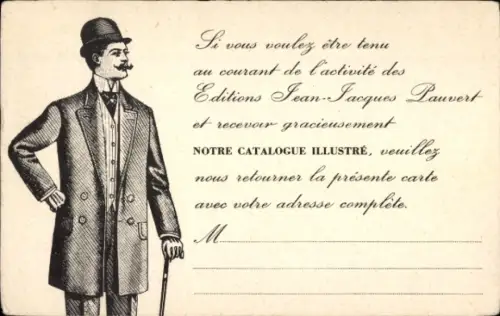 Si vous voulez être tenu
au courant de l'activité des
Editions Jean-Jacques Pauvert
et recevoir gracieusement
NOTRE CATALOGUE ILLUSTRÉ, veuillez
nous retourner la présente carte
avec votre adresse complète.
M